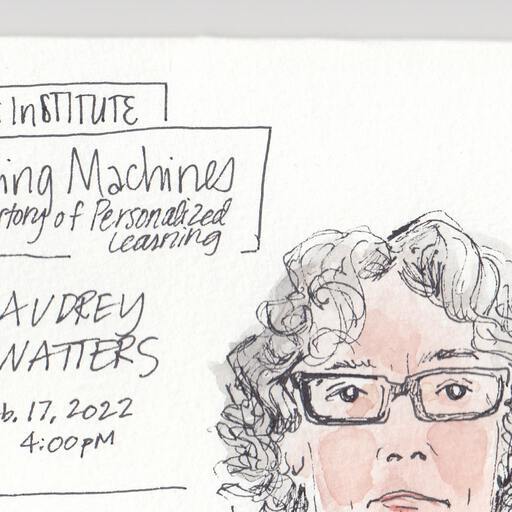 INSTITUTE
ing Machines
tory of Personalized
Learning
AUDREY
WATTERS
b. 17, 2022
4:00pm